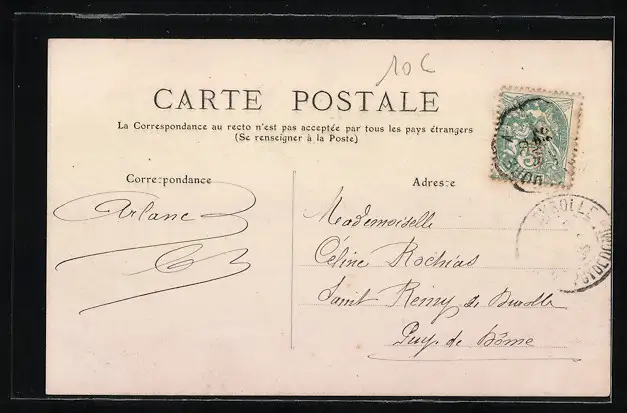 10 C
CARTE POSTALE
La Correspondance au recto n'est pas acceptée par tous les pays étrangers
(Se renseigner à la Poste)
Correspondance
Adresse
Arlanc
Mademoiselle
Céline Rochias
Saint Remy de Durolle
Puy de Dôme